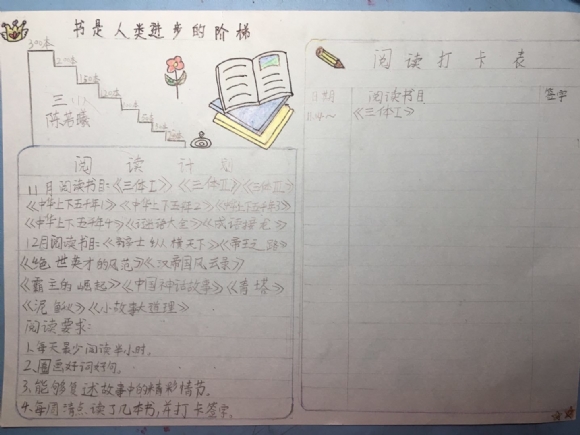 书是人类进步的阶梯
300本
200本
150本
陈若曦
阅读计划
11月阅读书目:《三体I》《三体II》《三体III》
《中华上下五千年1》《中华上下五千年2》《中华上下五千年3》
《中华上下五千年4》《谜语大全》《成语接龙》
12月阅读书目:纵横天下》《帝王之路》
《绝世英才的风范》《汉帝国风云录》
《霸王的崛起》《中国神话故事》《青塔》
《小故事大道理》
阅读要求:
1.每天至少阅读半小时。
2.圈画好词好句。
3.能够复述故事中的精彩情节。
4.每周清点读了几本书,并打卡签字。
阅读打卡表
日期 阅读书目 签字
11.4~ 《三体I》